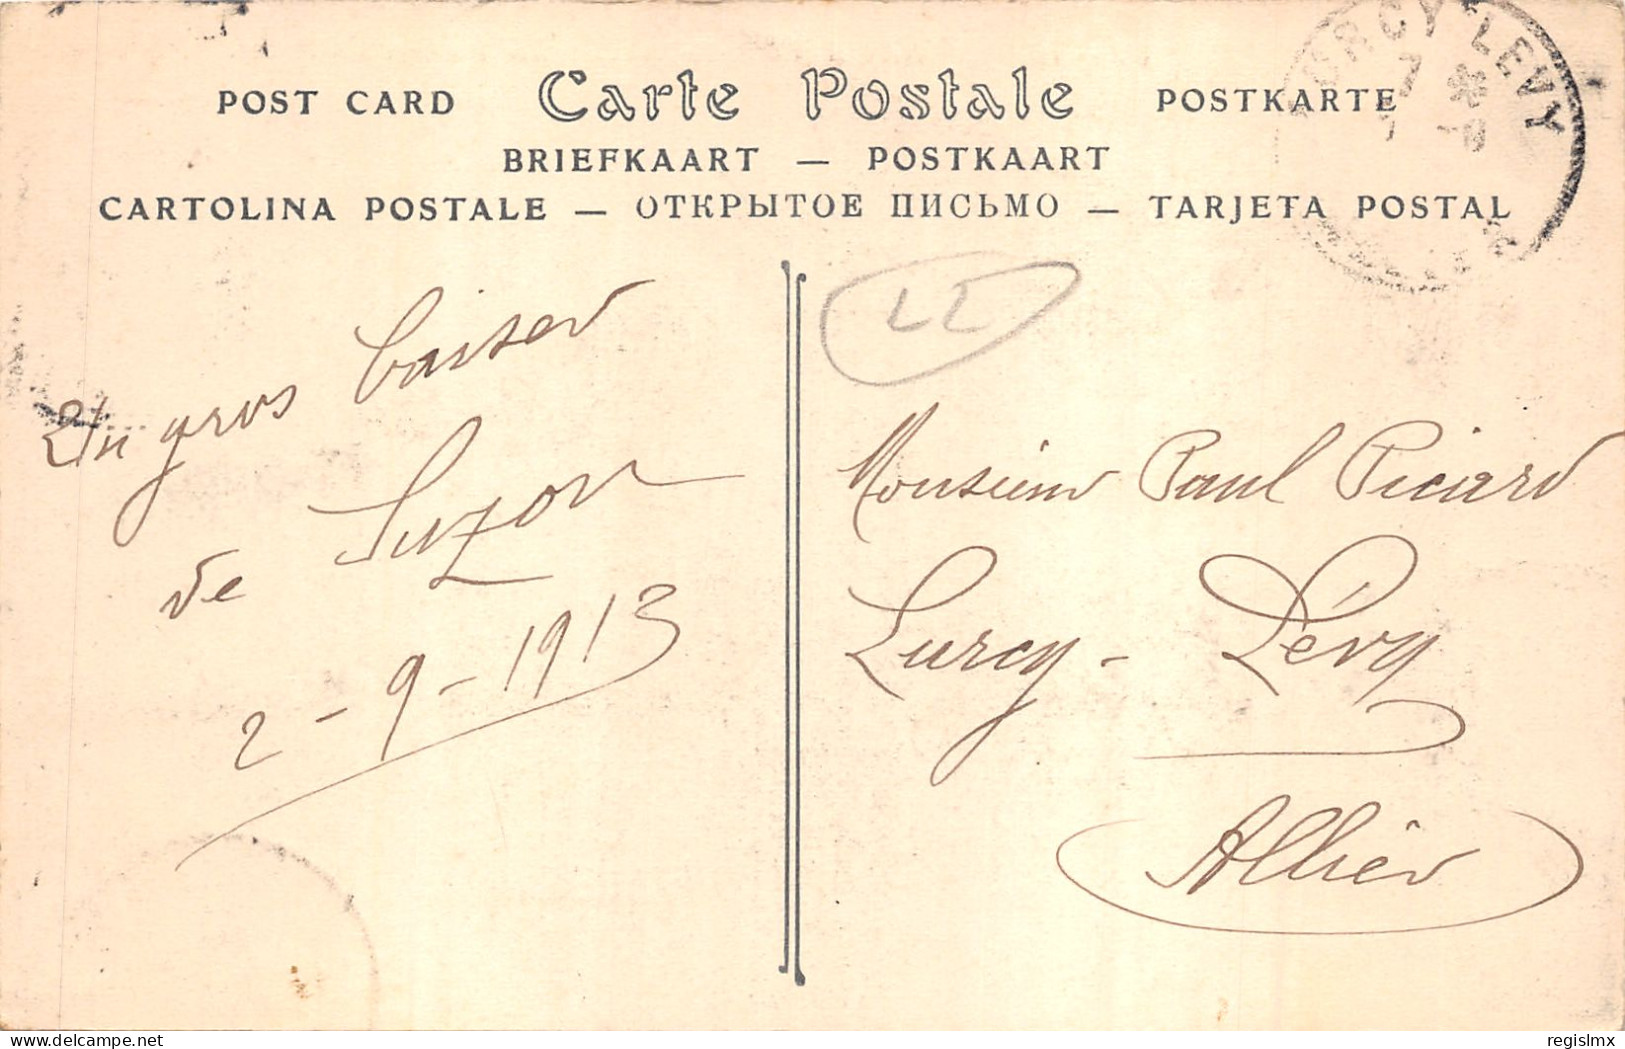 LURCY LEVY
POST CARD Carte Postale POSTKARTE
BRIEFKAART — POSTKAART
CARTOLINA POSTALE — ОТКРЫТОЕ ПИСЬМО — TARJETA POSTAL
Un gros baiser
de Suzon
2-9-1913
Monsieur Paul Picard
Lurcy-Lévy
Allier
delcampe.net
regislmx